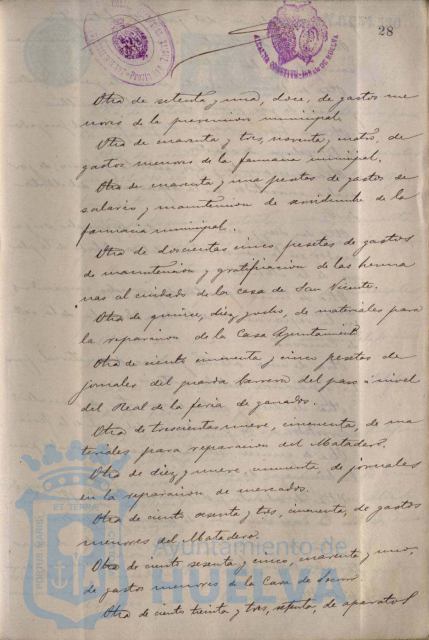 28
Otra de setenta y una, doce, de gastos me
nores de la prevención municipal.
Otra de cuarenta y tres, noventa y cuatro, de
gastos menores de la farmacia municipal.
Otra de cuarenta y una pesetas de gastos de
salario y manutención de sirviente de la
farmacia municipal.
Otra de doscientas cinco pesetas de gastos
de manutención y gratificación de las herma
nas al cuidado de la casa de San Vicente.
Otra de quince, diez y ocho, de materiales para
la reparación de la Casa Ayuntamiento
Otra de ciento cincuenta y cinco pesetas de
jornales del guarda barrera del paso a nivel
del Real de la feria de ganados.
Otra de trescientas nueve, cincuenta, de ma
teriales para reparación del Matadero.
Otra de diez y nueve, cincuenta, de jornales
en la reparación de mercados.
Otra de ciento sesenta y tres, cincuenta, de gastos
menores del Matadero.
Otra de ciento sesenta y cinco, cuarenta y uno,
de gastos menores de la Casa de Socorro
Otra de ciento treinta y tres, setenta, de aparatos
Ayuntamiento de
HUELVA